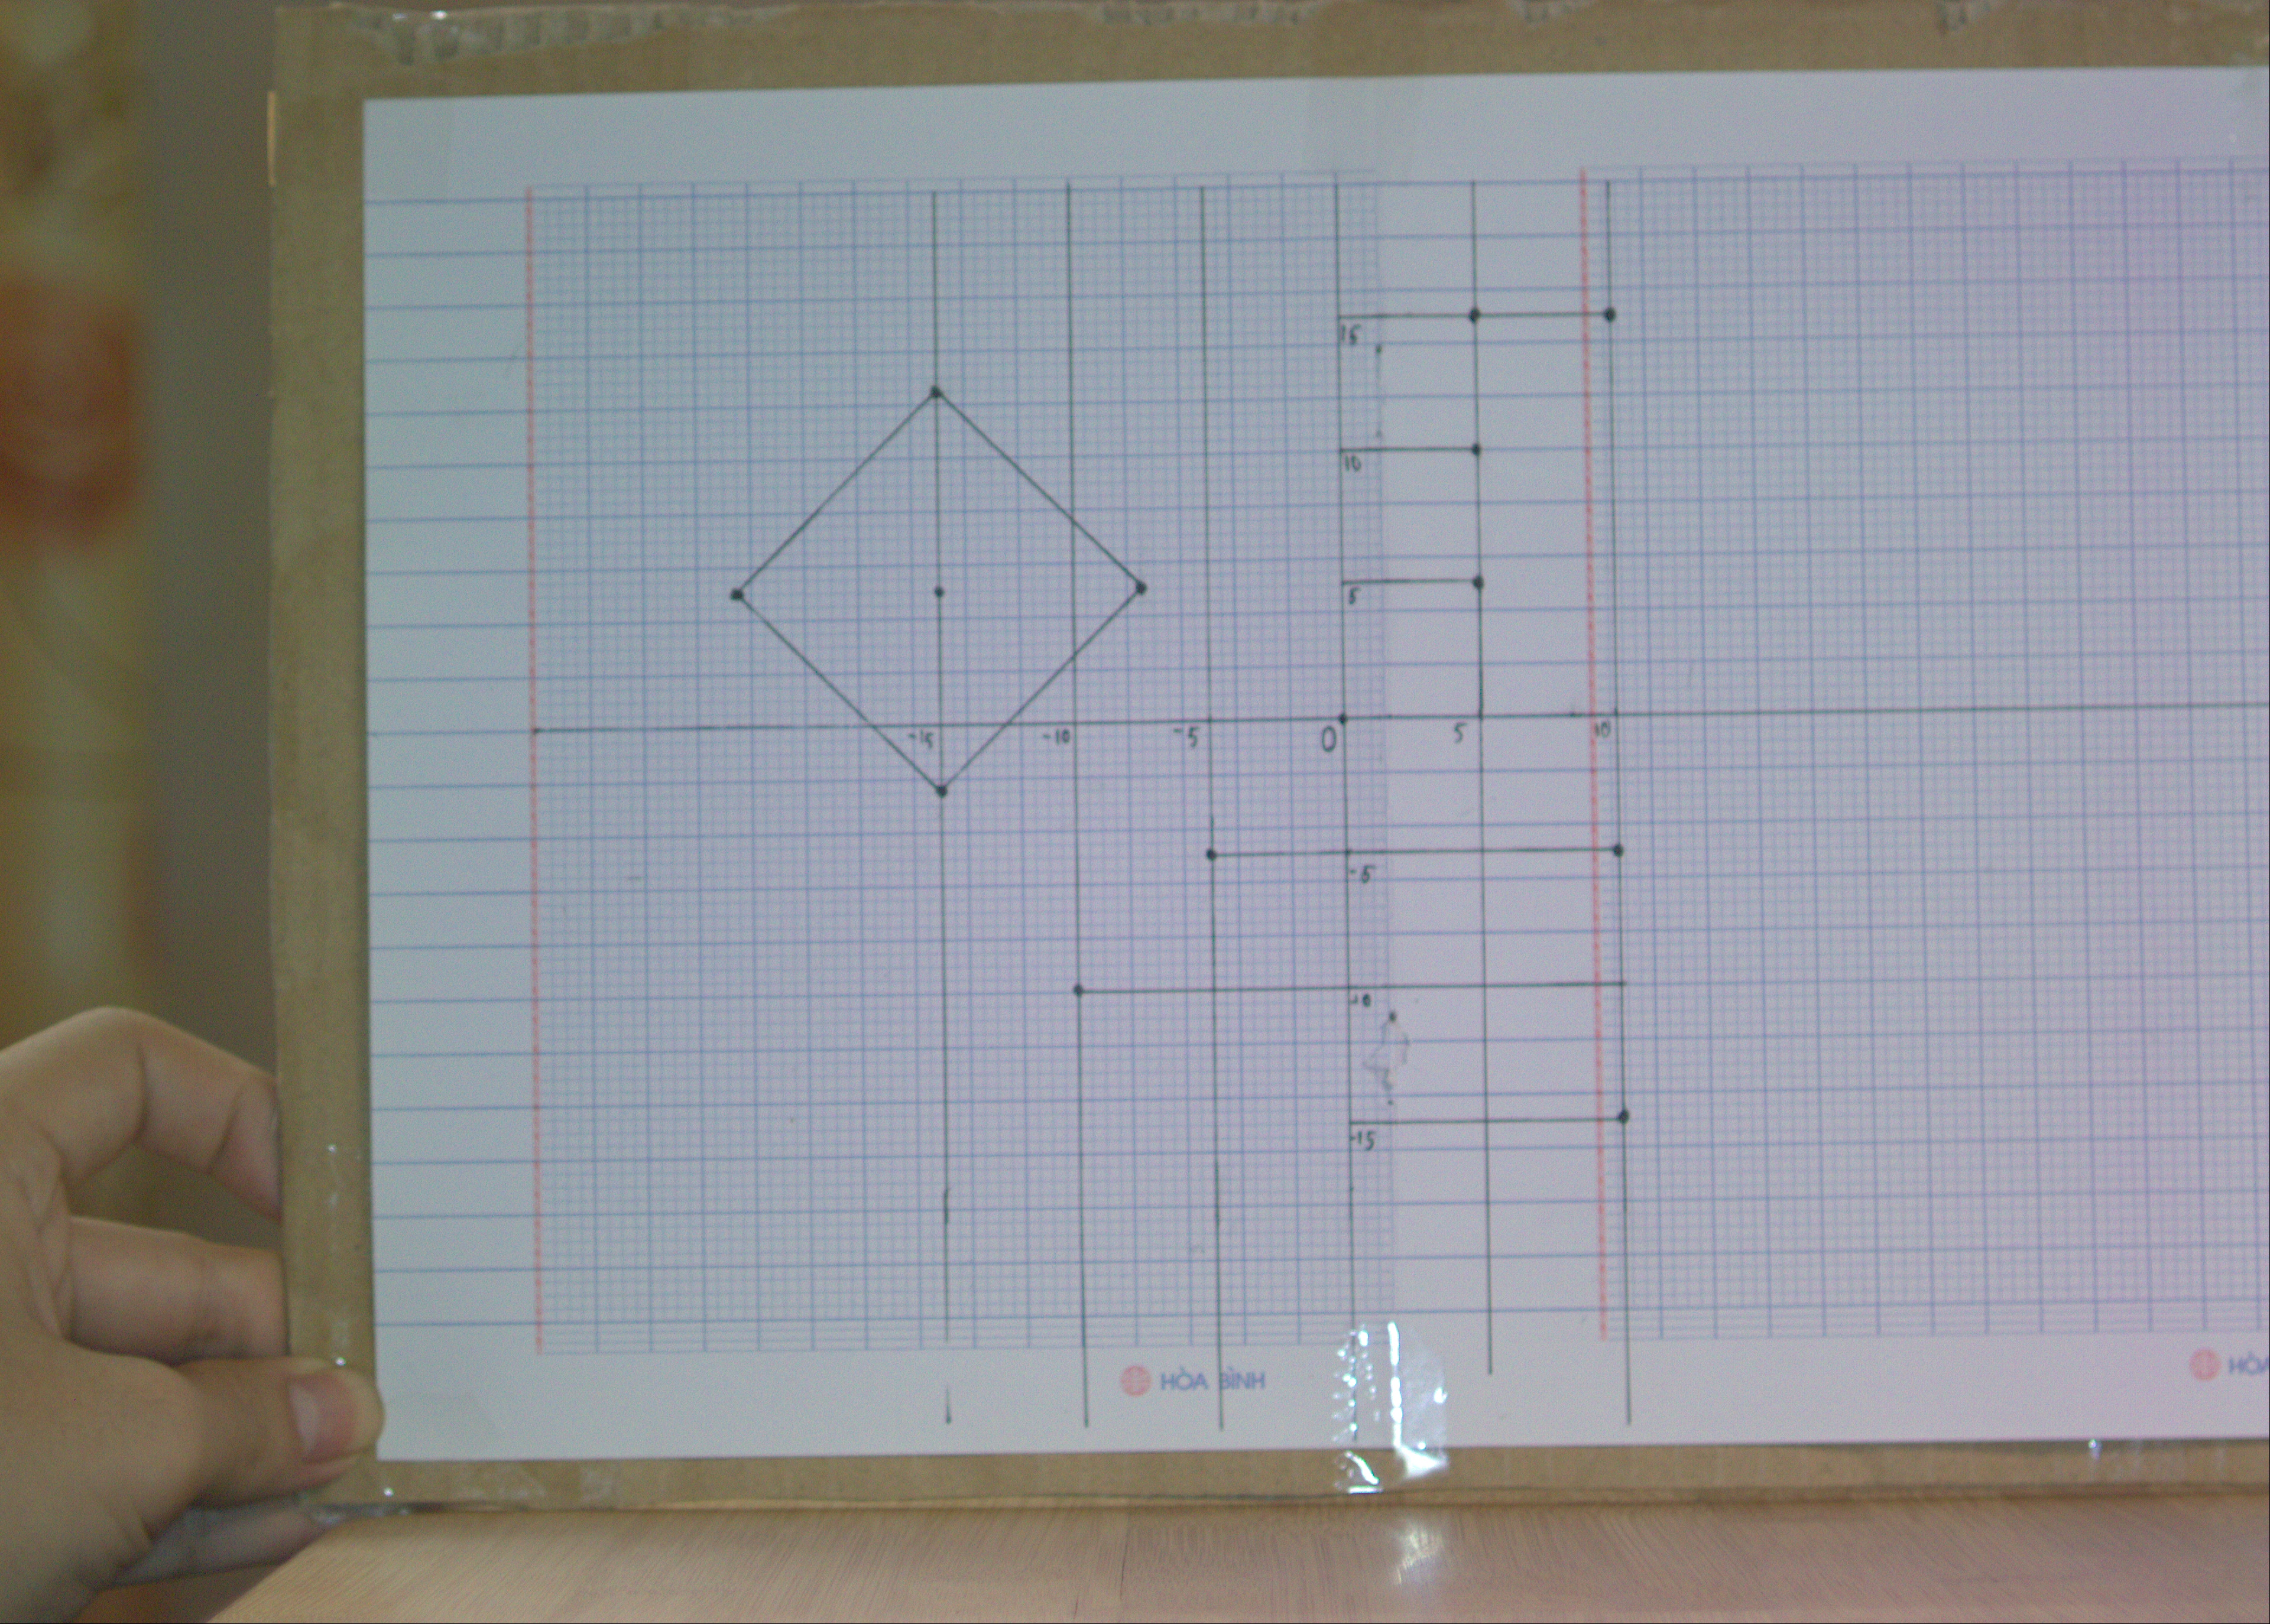 15
10
5
-15 -10 -5 0 5 10
-5
-10
-15
HÒA BÌNH